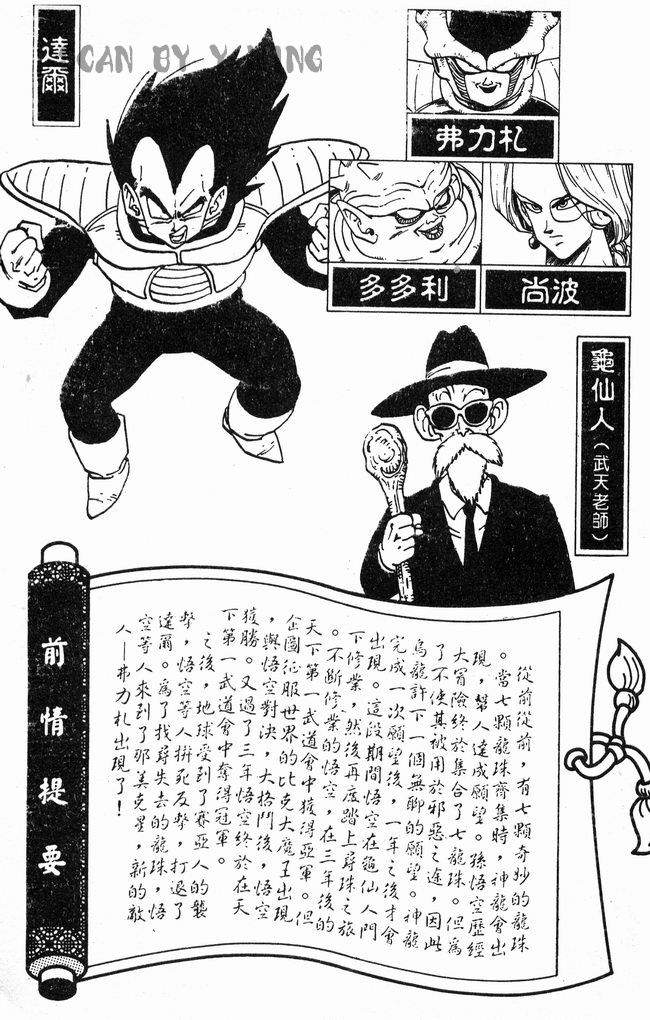 CAN BY Y
NG
達爾
弗力札
多多利
尚波
龜仙人(武天老師)
前情提要
從前從前,有七顆奇妙的龍珠
。當七顆龍珠齊集時,神龍會出
現,幫人達成願望。孫悟空歷經
大冒險終於集合了七龍珠。但為
了不使其被用於邪惡之途,因此
烏龍許下一個無聊的願望。神龍
完成一次願望後,一年之後才會
出現。這段期間悟空在龜仙人門
下修業,然後再度踏上尋珠之旅
。不斷修業的悟空,在三年後的
天下第一武道會中獲得亞軍。但
企圖征服世界的比克大魔王出現
,與悟空對決,大格鬥後,悟空
獲勝。又過了三年悟空終於在天
下第一武道會中奪得冠軍。
之後,地球受到了賽亞人的襲
擊,悟空等人拚死反擊,打退了
達爾。為了找尋失去的龍珠,悟
空等人來到了那美克星,新的敵
人—弗力札出現了!